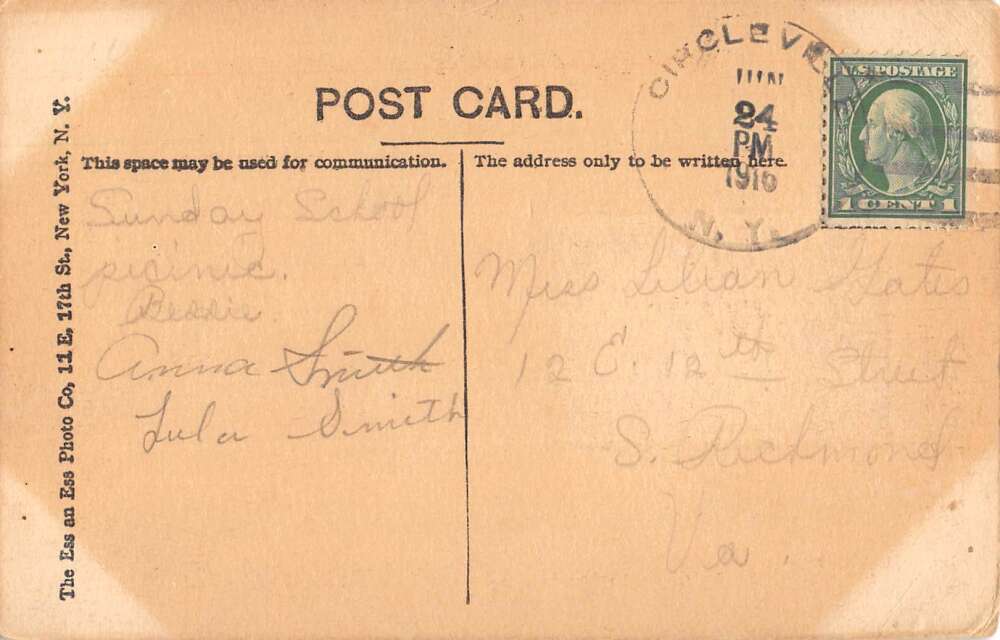 POST CARD.
This space may be used for communication.
The address only to be written here.
The Ess an Ess Photo Co, 11 E, 17th St., New York, N. Y.
CIRCLEVILLE
JUN
24
PM
1916
N. Y.
U.S. POSTAGE
1 CENT 1
Sunday School
picinic.
Beddie
Anna Smith
Lula Smith
Miss Lilian Gates
12 E. 12th Street
S. Richmond
Va.